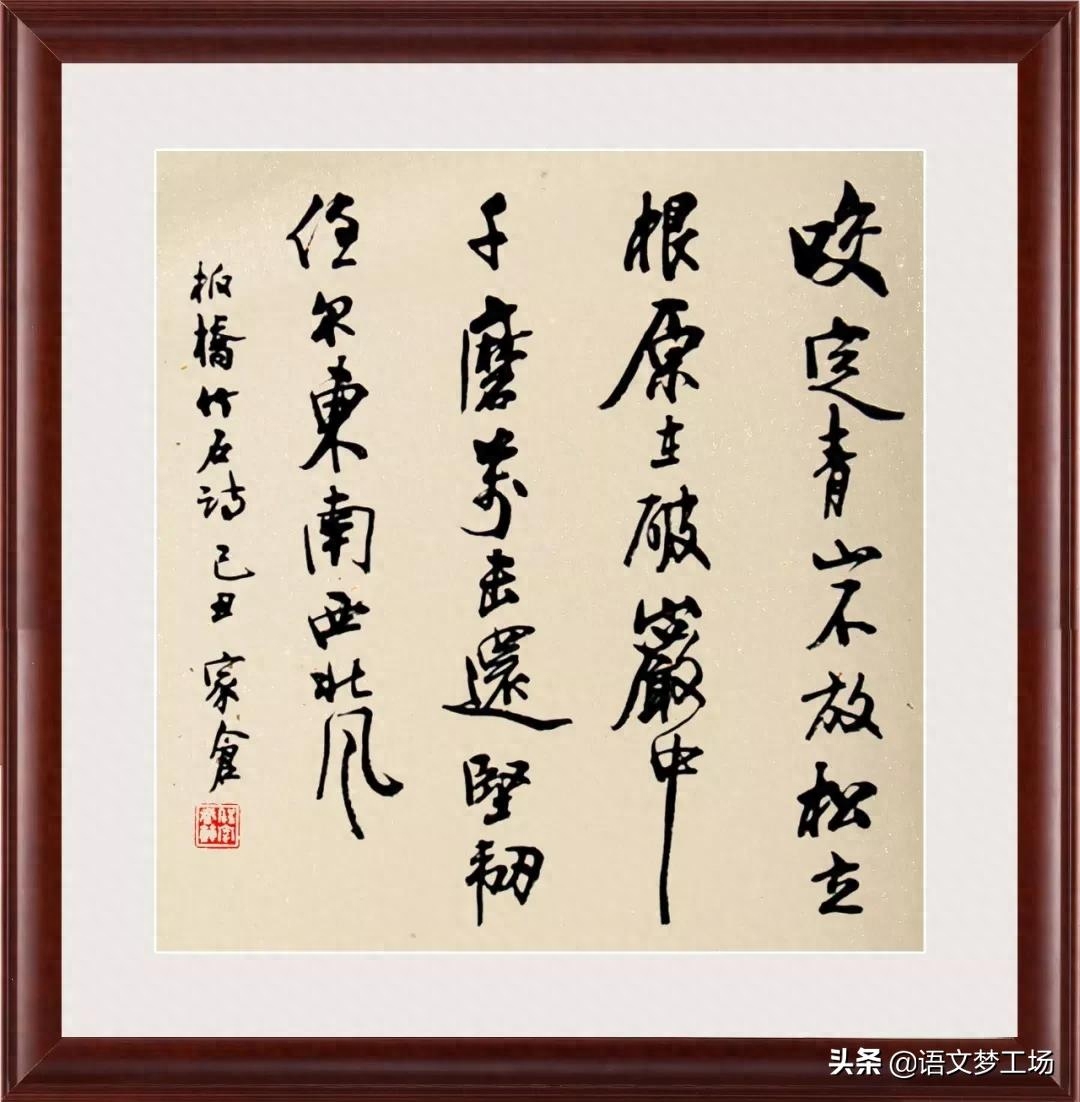 咬定青山不放松立
根原在破巖中
千磨萬击還堅韧
任尔東南西北风
板橋竹石詩 己丑 家倉
头条 @语文梦工场